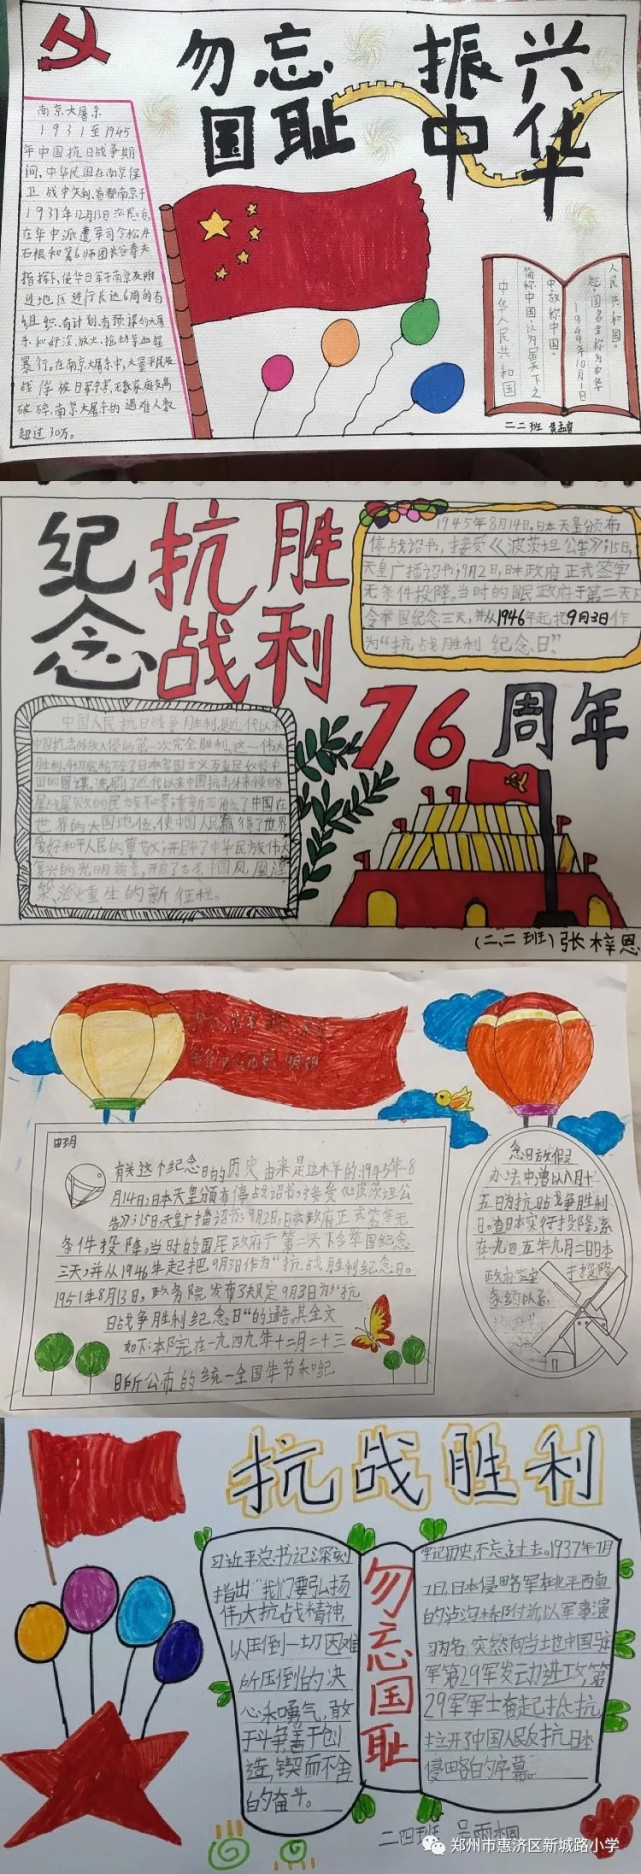 勿忘 振兴
国耻 中华
南京大屠杀
1931至1945
年中国抗日战争期
间,中华民国在南京保
卫战中失利、首都南京于
1937年12月13日
在华中派遣军司令松井
石根和第6师团长谷寿夫
指挥下,侵华日军于南京及附
近地区进行长达6周的有
组织、有计划、有预谋的大屠
杀和奸淫、放火、抢劫等血腥
暴行。在南京大屠杀中,大量平民及
战俘被日军杀害,无数家庭支离
破碎,南京大屠杀的遇难人数
超过30万。
中华人民共和国
简称中国,认为居天下之
中,故称中国。
1949年10月1日
国名定称为中华
人民共和国。
二二班
纪念 抗战 胜利
1945年8月14日,日本天皇颁布
停战诏书,接受《波茨坦公告》;15日,
天皇广播诏书;9月2日,日本政府正式签字
无条件投降。当时的国民政府于第二天下
令举国纪念三天,并从1946年起把9月3日作
为“抗战胜利纪念日”。
76周年
中国人民抗日战争胜利,是近代以来
中国抗击外敌入侵的第一次完全胜利。这一伟大
胜利,彻底粉碎了日本军国主义殖民奴役中
国的图谋,洗刷了近代以来中国抗击外来侵略
屡战屡败的民族耻辱;重新确立了中国在
世界的大国地位,使中国人民赢得了世界
爱好和平人民的尊敬;开辟了中华民族伟大
复兴的光明前景,开启了古老中国凤凰涅
槃、浴火重生的新征程。
(二、二班)张梓恩
有关这个纪念日的历史由来是这木羊的:1945年8
月14日,日本天皇颁布停战诏书,接受《波茨坦公
告》;15日天皇广播诏书;9月2日,日本政府正式签字无
条件投降。当时的国民政府于第二天下令举国纪念
三天,并从1946年起把9月3日作为“抗战胜利纪念日。
1951年8月13日,政务院发布了规定9月3日为“抗
日战争胜利纪念日“的通告。其全文
如下:本院在一九四九年十二月二十三
日所公布的统一全国年节和纪
念日放假
办法中,曾以八月十
五日为抗日战争胜利
日。查日本实行投降,系
在一九四五年九月二日日本
政府签字
条约以后。
抗战胜利
习近平总书记深刻
指出“我们要弘扬
伟大抗战精神,
以压倒一切困难
而不
所压倒的决
心和勇气,敢
于斗争,善于创
造,锲而不舍
的奋斗。
勿忘国耻
牢记历史,不忘过去。1937年7月
7日,日本侵略军在北平西南
的卢沟桥附近以军事演
习为名,突然向当地中国驻
军第29军发动进攻,第
29军军士奋起抵抗,
拉开了中国人民反抗日本
侵略的序幕。
二四班 吴雨桐
郑州市惠济区新城路小学